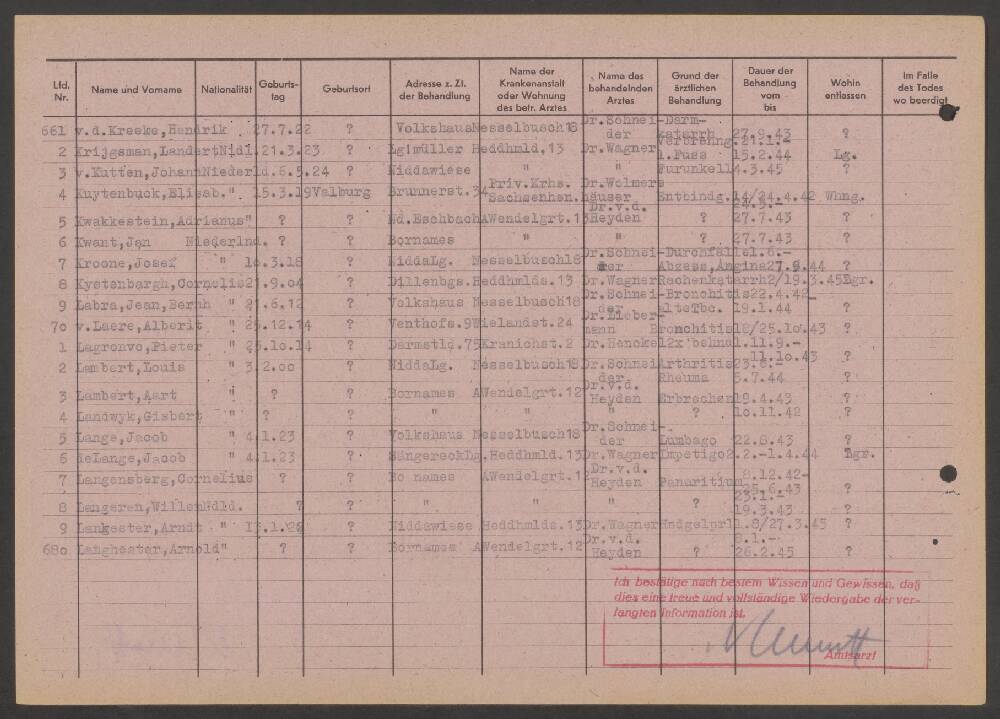 Lfd. Nr. Name und Vorname Nationalität Geburts-tag Geburtsort Adresse z. Zt. der Behandlung Name der Krankenanstalt oder Wohnung des betr. Arztes Name des behandelnden Arztes Grund der ärztlichen Behandlung Dauer der Behandlung vom bis Wohin entlassen Im Falle des Todes wo beerdigt
661 v.d.Kreeke,Hendrik 27.7.22 ? Volkshaus Nesselbusch18 Dr.Schnei-der Darm-katarrh 27.9.43 ?
2 Krijgsman,Landert Ndl. 21.3.23 ? Lgimüller Heddhmld.13 Dr.Wagner Verbrenng. l.Fuss 21.1.- 15.2.44 Lg.
3 v.Kutten,Johann Niederld. 6.5.24 ? Niddawiese " " Furunkel 14.3.45 ?
4 Kuytenbuck,Elisab. " 15.3.19 Valburg Brunnerst.34 Priv.Krhs. Sachsenhen. Dr.Wolmers-häuser Entbindg. 14/24.4.42 Whng.
5 Kwakkestein,Adrianus " ? ? Nd.Eschbach AWendelgrt.13 Dr.v.d. Heyden ? 27.7.43 ?
6 Kwant,Jan Niederlnd. ? ? Bornames " " ? 27.7.43 ?
7 Kroone,Josef " 10.3.18 ? NiddaLg. Nesselbusch18 Dr.Schnei-der Durchfälle Abzess,Angina 1.6.- 27.9.44 ?
8 Kystenbargh,Cornelis 21.9.04 ? Dillenbgs. Heddhmlds.13 Dr.Wagner Rachenkatarrh 2/19.3.45 Bgr.
9 Labra,Jean,Bernh " 21.6.12 ? Volkshaus Nesselbusch18 Dr.Schnei-der Bronchitis alteTbc. 22.4.42- 19.1.44 ?
70 v.Laere,Alberit " 25.12.14 ? Venthofs.9 Wielandst.24 Dr.Lieber-mann Bronchitis 18/25.10.43 ?
1 Lagronvo,Pieter " 25.10.14 ? Darmstld.75 Kranichst.2 Dr.Henckel 2x behndl. 11.9.- 11.10.43 ?
2 Lambert,Louis " 3.2.00 ? NiddaLg. Nesselbusch18 Dr.Schnei-der Arthritis Rheuma 23.6.- 5.7.44 ?
3 Lambert,Aart " ? ? Bornames AWendelgrt.12 Dr.v.d. Heyden Erbrechen 19.4.43 ?
4 Landwyk,Gisbert " ? ? " " " ? 10.11.42 ?
5 Lange,Jacob " 4.1.23 ? Volkshaus Nesselbusch18 Dr.Schnei-der Lumbago 22.8.43 ?
6 deLange,Jacob " 4.1.23 ? Sängereck Lg.Heddhmld.13 Dr.Wagner Impetigo 2.2.-1.4.44 Bgr.
7 Langensberg,Cornelius ? ? Bo names AWendelgrt.12 Dr.v.d. Heyden Panaritium 8.12.42- 25.6.43 ?
8 Langeren,Willem Ndld. ? " " " ? 23.1.- 19.3.43 ?
9 Lankester,Arndt " 1 .1.22 ? Niddawiese Heddhmlds.13 Dr.Wagner Hndgelprl 1.8/27.3.45 ?
680 Langhester,Arnold " ? ? Bornames AWendelgrt.12 Dr.v.d. Heyden ? 8.1.- 26.2.45 ?
Ich bestätige nach bestem Wissen und Gewissen, daß
dies eine treue und vollständige Wiedergabe der ver-
langten Information ist.
Amtsarzt